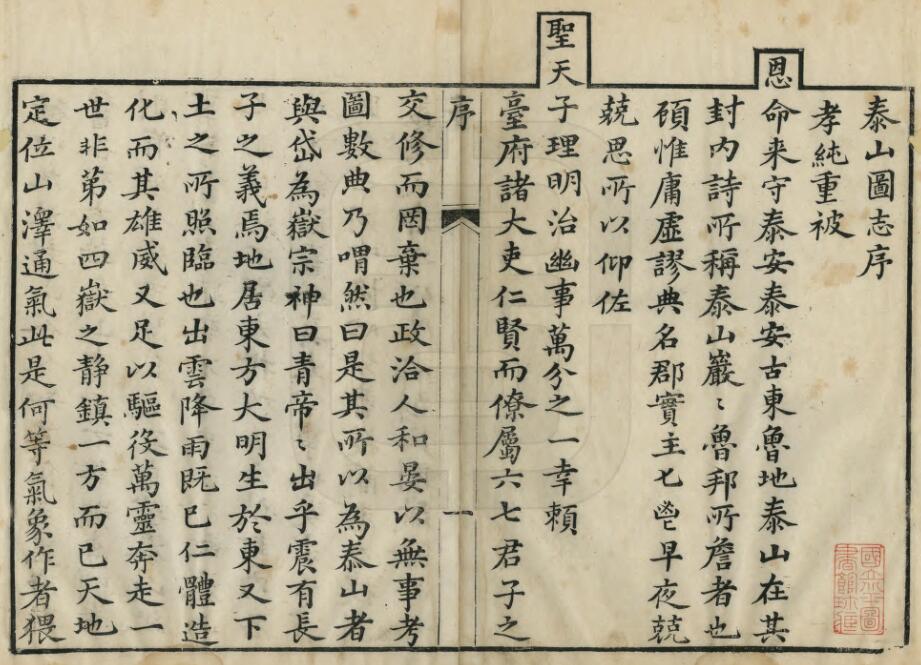 泰山圖志序
孝純重被
恩命来守泰安泰安古東魯地泰山在其
封内詩所稱泰山巖〻魯邦所詹者也
顧惟庸虚謬典名郡實主匕鬯早夜兢
兢思所以仰佐
聖天子理明治幽事萬分之一幸賴
臺府諸大吏仁賢而僚屬六七君子之
序
一
交修而罔棄也政洽人和晏以無事考
圖數典乃喟然曰是其所以為泰山者
與岱為嶽宗神曰青帝〻出乎震有長
子之義焉地居東方大明生於東又下
土之所照臨也出雲降雨既已仁體造
化而其雄威又足以驅役萬靈奔走一
世非第如四嶽之靜鎮一方而已天地
定位山澤通氣此是何等氣象作者猥